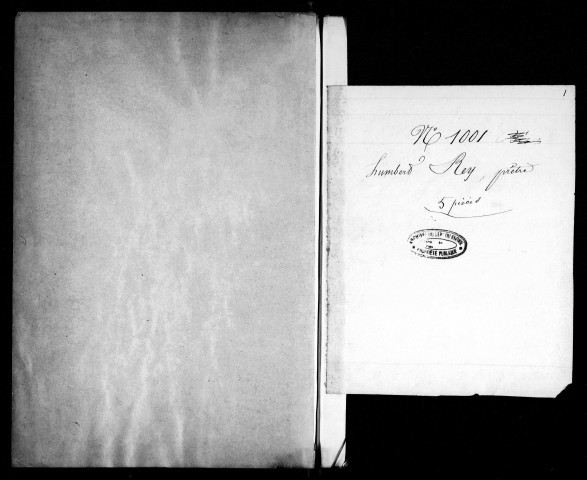 1
N° 1001
humbert Rey, prêtre
5 pièces
PROPRIÉTÉ PUBLIQUE